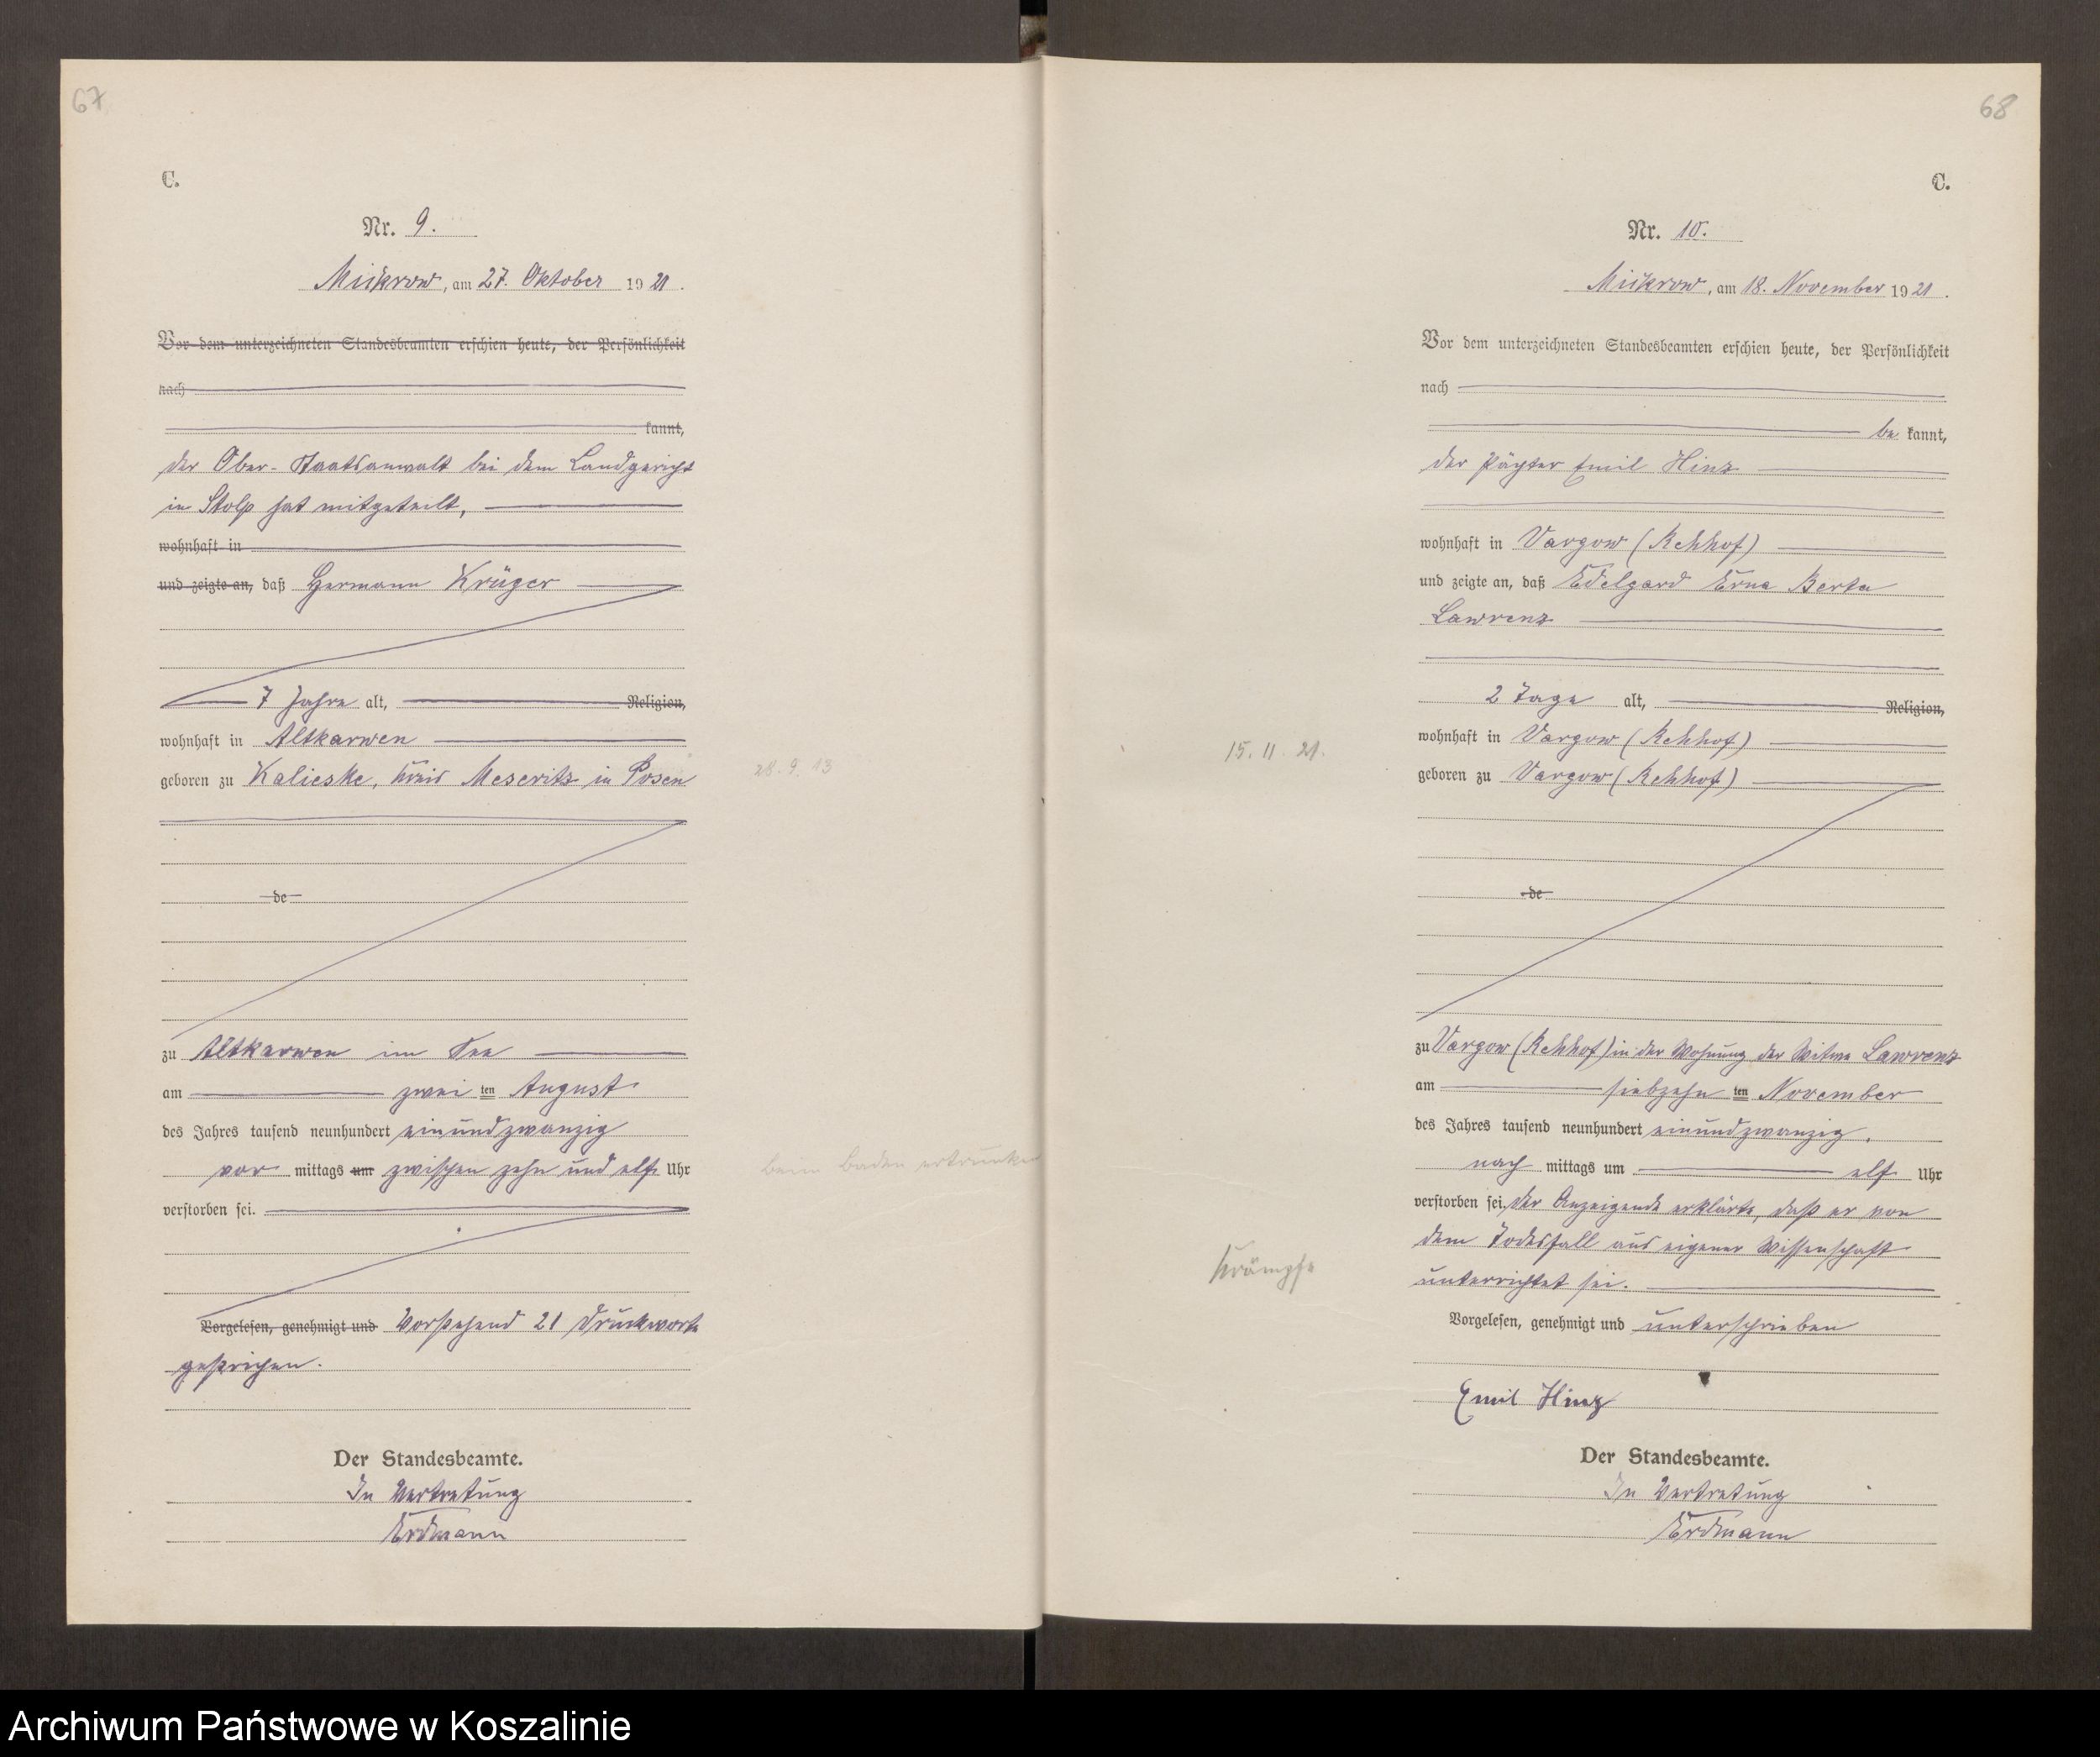 67
C.
Nr. 9.
Mickrow, am 27. Oktober 1921.
Vor dem unterzeichneten Standesbeamten erschien heute, der Persönlichkeit
nach
kannt,
der Ober-Staatsanwalt bei dem Landgericht
in Stolp hat mitgeteilt,
wohnhaft in
und zeigte an, daß Hermann Krüger
7 Jahre alt, Religion,
wohnhaft in Altkarwen
geboren zu Kalieske, Kreis Meseritz in Posen
28. 9. 13
de
zu Altkarwen im See
am zwei ten August
des Jahres tausend neunhundert einundzwanzig
vor mittags um zwischen zehn und elf Uhr
beim Baden ertrunken
verstorben sei.
Vorgelesen, genehmigt und Vorstehend 21 Druckworte
gestrichen.
Der Standesbeamte.
In Vertretung
Erdmann
68
C.
Nr. 10.
Mickrow, am 18. November 1921.
Vor dem unterzeichneten Standesbeamten erschien heute, der Persönlichkeit
nach
be kannt,
der Pächter Emil Hinz
wohnhaft in Vargow (Rehhof)
und zeigte an, daß Edelgard Erna Berta
Lawrenz
2 Tage alt, Religion,
wohnhaft in Vargow (Rehhof)
15. 11. 21.
geboren zu Vargow (Rehhof)
de
zu Vargow (Rehhof) in der Wohnung der Witwe Lawrenz
am siebzehn ten November
des Jahres tausend neunhundert einundzwanzig,
nach mittags um elf Uhr
verstorben sei. Der Anzeigende erklärte, daß er von
dem Todesfall aus eigener Wissenschaft
Krämpfe
unterrichtet sei.
Vorgelesen, genehmigt und unterschrieben
Emil Hinz
Der Standesbeamte.
In Vertretung
Erdmann
Archiwum Państwowe w Koszalinie